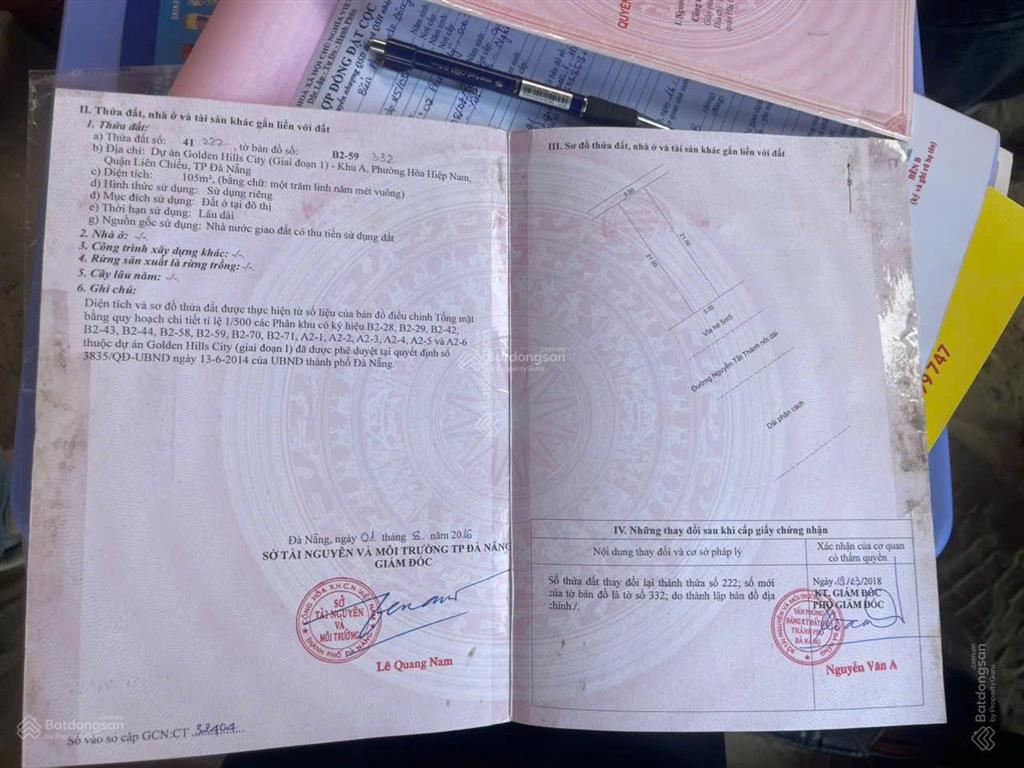 HÒA XÃ HỘI CHỦ NGHĨA VIỆT
Độc Lập - Tự Do - Hạnh Phúc
HỢP ĐỒNG ĐẶT CỌC
QUYỀN
BÊN B
(ký và ghi rõ họ tên)
79 747
II. Thửa đất, nhà ở và tài sản khác gắn liền với đất
1. Thửa đất:
a) Thửa đất số: 41 222, tờ bản đồ số: B2-59 332
b) Địa chỉ: Dự án Golden Hills City (Giai đoạn 1) - Khu A, Phường Hòa Hiệp Nam,
Quận Liên Chiểu, TP Đà Nẵng
c) Diện tích: 105m², (bằng chữ: một trăm linh năm mét vuông)
d) Hình thức sử dụng: Sử dụng riêng
đ) Mục đích sử dụng: Đất ở tại đô thị
e) Thời hạn sử dụng: Lâu dài
g) Nguồn gốc sử dụng: Nhà nước giao đất có thu tiền sử dụng đất
2. Nhà ở: -/-
3. Công trình xây dựng khác: -/-.
4. Rừng sản xuất là rừng trồng: -/-.
5. Cây lâu năm: -/-.
6. Ghi chú:
Diện tích và sơ đồ thửa đất được thực hiện từ số liệu của bản đồ điều chỉnh Tổng mặt
bằng quy hoạch chi tiết tỉ lệ 1/500 các Phân khu có ký hiệu B2-28, B2-29, B2-42,
B2-43, B2-44, B2-58, B2-59, B2-70, B2-71, A2-1, A2-2, A2-3, A2-4, A2-5 và A2-6
thuộc dự án Golden Hills City (giai đoạn I) đã được phê duyệt tại quyết định số
3835/QĐ-UBND ngày 13-6-2014 của UBND thành phố Đà Nẵng.
Đà Nẵng, ngày 01 tháng 8 năm 2016
SỞ TÀI NGUYÊN VÀ MÔI TRƯỜNG TP ĐÀ NẴNG
GIÁM ĐỐC
CỘNG HÒA X.H.C.N VIỆT NAM
SỞ
TÀI NGUYÊN
VÀ
MÔI TRƯỜNG
THÀNH PHỐ ĐÀ NẴNG
Lê Quang Nam
Số vào sổ cấp GCN:CT 32404
III. Sơ đồ thửa đất, nhà ở và tài sản khác gắn liền với đất
5.00
21.00
21.00
5.00
Vỉa hè 5m5
Đường Nguyễn Tất Thành nối dài
Dải phân cách
IV. Những thay đổi sau khi cấp giấy chứng nhận
Nội dung thay đổi và cơ sở pháp lý
Xác nhận của cơ quan
có thẩm quyền
Số thửa đất thay đổi lại thành thửa số 222; số mới
của tờ bản đồ là tờ số 332; do thành lập bản đồ địa
chính./.
Ngày 19/03/2018
KT. GIÁM ĐỐC
PHÓ GIÁM ĐỐC
VĂN PHÒNG
ĐĂNG KÝ ĐẤT
THÀNH PHỐ
ĐÀ NẴNG
Nguyễn Văn A
Batdongsan
by PropertyGuru
Batdongsan
by PropertyGuru
Batdongsan.com.vn
by PropertyGuru